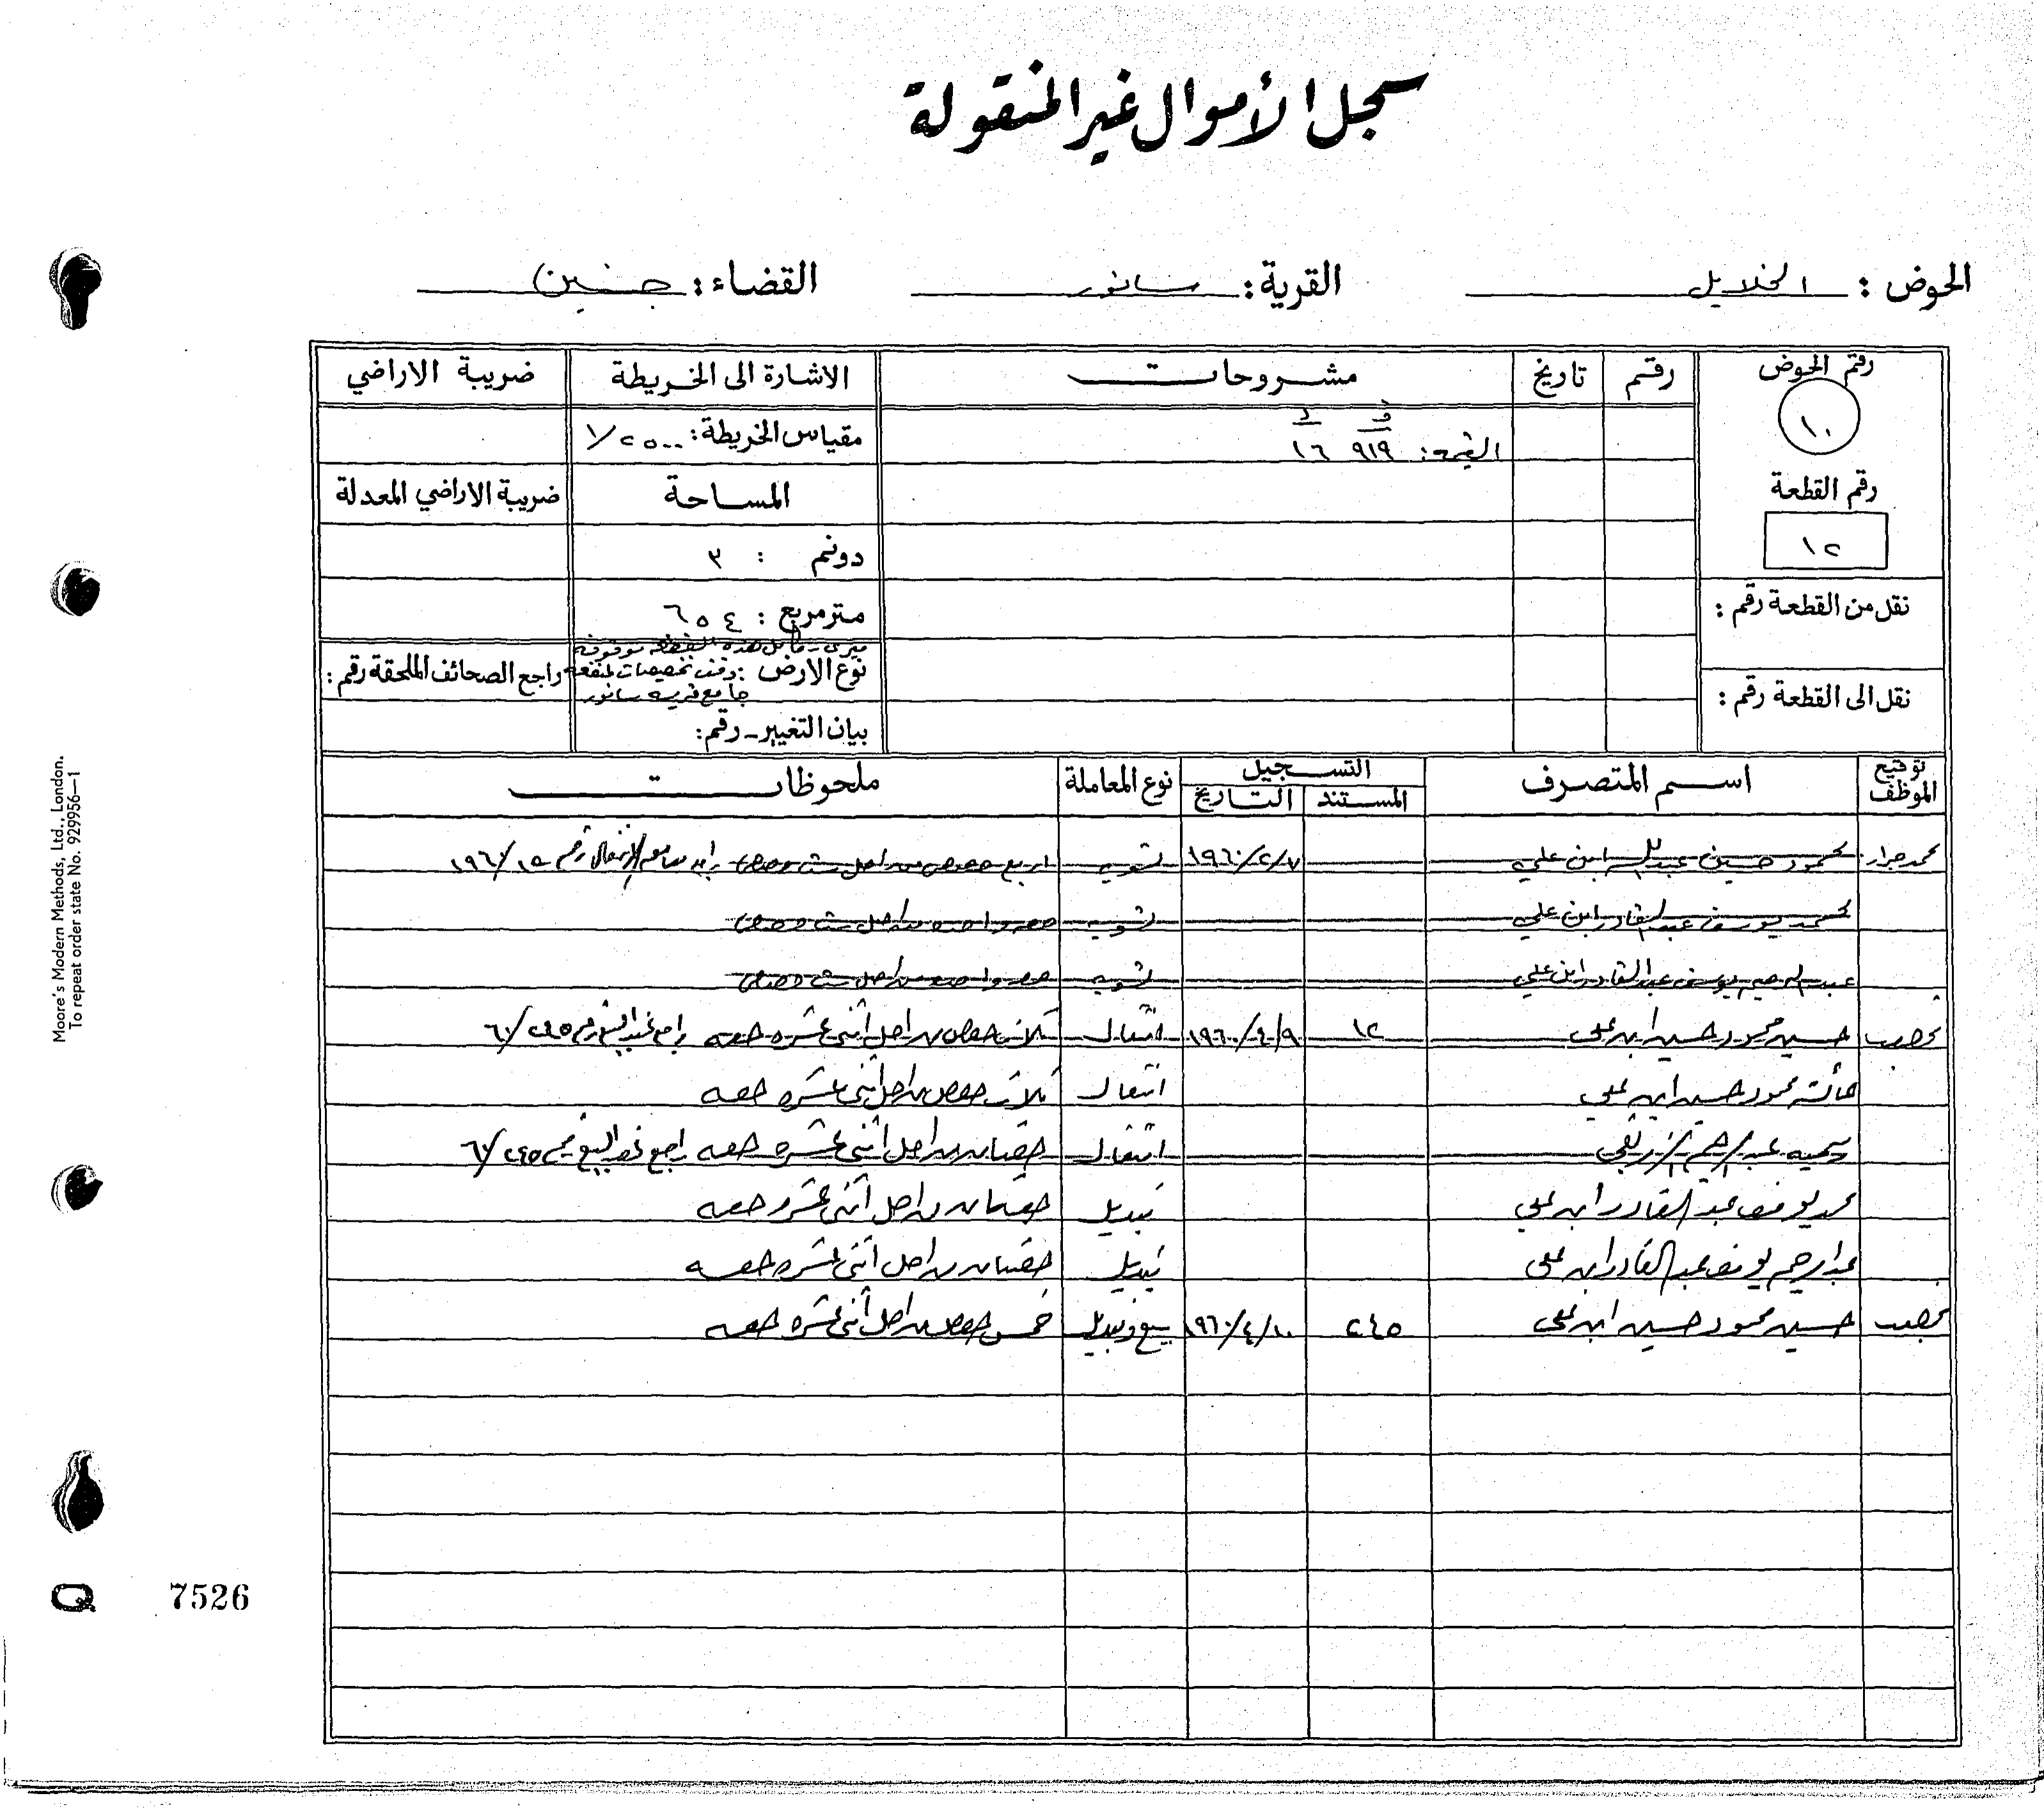 سجل الأموال غير المنقولة
الحوض : الخلايل القرية : سانور القضاء : جنين
رقم الحوض رقم تاريخ مشروحات الاشارة الى الخريطة ضريبة الاراضي
١٠
ف د
القيمة : ٩١٩ ١٦
مقياس الخريطة : ١/٢٥٠٠
رقم القطعة المساحة ضريبة الاراضي المعدلة
١٢
دونم : ٣
متر مربع : ٦٥٤
نقل من القطعة رقم :
ميري - هذه القطعة موقوفة
نوع الارض : وقف تخصيصات لمنفعة
جامع قرية سانور
راجع الصحائف الملحقة رقم :
نقل الى القطعة رقم :
بيان التغيير - رقم :
توقيع الموظف اسم المتصرف التسجيل نوع المعاملة ملحوظات
المستند التاريخ
محمد جرار محمود حسين عبدالله ابن علي ١٩٦٠/٢/٧ تسوية اربع حصص من اصل ست حصص الانتقال رقم ١٩٦٠/١٥
محمد يوسف عبد القادر ابن علي تسوية حصة واحدة من اصل ست حصص
عبد الرحيم يوسف عبد القادر ابن علي تسوية حصة واحدة من اصل ست حصص
حسين محمود حسين ابن علي ١٢ ١٩٦٠/٤/٩ انتقال ثلاث حصص من اصل اثني عشره حصه راجع عقد البيع رقم ٦٠/٢٤٥
عائشة محمود حسين ابن علي انتقال ثلاث حصص من اصل اثني عشره حصه
سميه عبد الرحيم انتقال حصتان من اصل اثني عشره حصه راجع عقد البيع ٦٠/٢٤٥
محمد يوسف عبد القادر ابن علي تبديل حصتان من اصل اثني عشره حصه
عبد الرحيم يوسف عبد القادر ابن علي تبديل حصتان من اصل اثني عشره حصه
حسين محمود حسين ابن علي ٢٤٥ ١٩٦٠/٤/١٠ بيع وتبديل خمس حصص من اصل اثني عشره حصه
Moore's Modern Methods, Ltd., London.
To repeat order state No. 929956—1
Q 7526